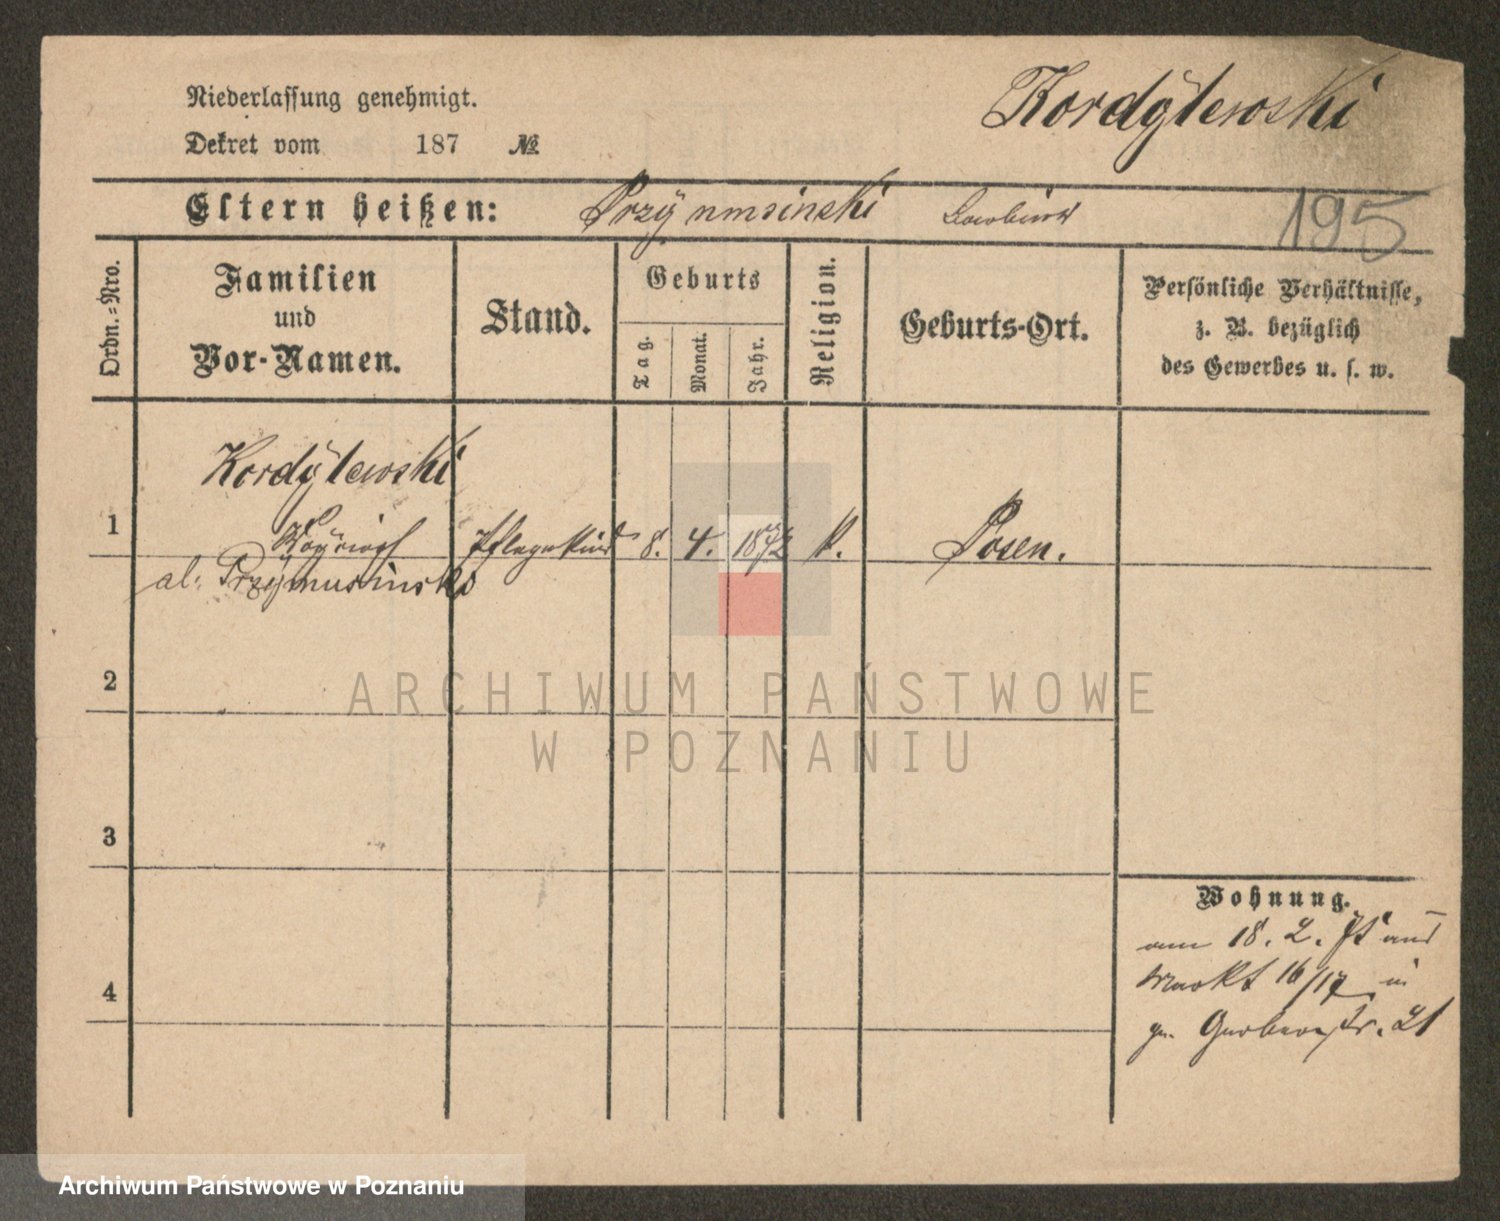 Niederlassung genehmigt.
Kordÿlewski
Dekret vom 187 №
Eltern heißen: Przÿmusinski
195
Ordn.-Nro.
Familien
und
Vor-Namen.
Stand.
Geburts
Tag.
Monat.
Jahr.
Religion.
Geburts-Ort.
Persönliche Verhältnisse,
z. B. bezüglich
des Gewerbes u. s. w.
Kordÿlewski
1 Pflegekind 8. 4. 1872 k. Posen.
al. Przÿmusinski
2
ARCHIWUM PAŃSTWOWE
W POZNANIU
3
Wohnung.
am 18. 2. aus
4
Markt 16/17 in
gr. Gerberstr. 21
Archiwum Państwowe w Poznaniu